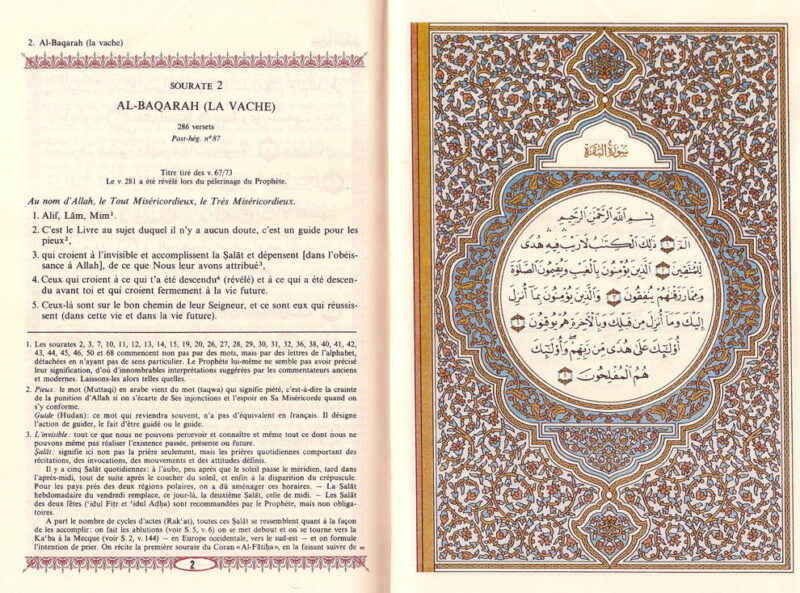 2. Al-Baqarah (la vache)
SOURATE 2
AL-BAQARAH (LA VACHE)
286 versets
Post-hég. n° 87
Titre tiré des v. 67/73
Le v. 281 a été révélé lors du pèlerinage du Prophète.
Au nom d'Allah, le Tout Miséricordieux, le Très Miséricordieux.
1. Alif, Lâm, Mim¹.
2. C'est le Livre au sujet duquel il n'y a aucun doute, c'est un guide pour les
pieux²,
3. qui croient à l'invisible et accomplissent la Ṣalât et dépensent [dans l'obéis-
sance à Allah], de ce que Nous leur avons attribué³,
4. Ceux qui croient à ce qui t'a été descendu⁴ (révélé) et à ce qui a été descen-
du avant toi et qui croient fermement à la vie future.
5. Ceux-là sont sur le bon chemin de leur Seigneur, et ce sont eux qui réussis-
sent (dans cette vie et dans la vie future).
1. Les sourates 2, 3, 7, 10, 11, 12, 13, 14, 15, 19, 20, 26, 27, 28, 29, 30, 31, 32, 36, 38, 40, 41, 42,
43, 44, 45, 46, 50 et 68 commencent non pas par des mots, mais par des lettres de l'alphabet,
détachées en n'ayant pas de sens particulier. Le Prophète lui-même ne semble pas avoir précisé
leur signification, d'où d'innombrables interprétations suggérées par les commentateurs anciens
et modernes. Laissons-les alors telles quelles.
2. Pieux: le mot (Muttaqi) en arabe vient du mot (taqwa) qui signifie piété, c'est-à-dire la crainte
de la punition d'Allah si on s'écarte de Ses injonctions et l'espoir en Sa Miséricorde quand on
s'y conforme.
Guide (Hudan): ce mot qui reviendra souvent, n'a pas d'équivalent en français. Il désigne
l'action de guider, le fait d'être guidé ou le guide.
3. L'invisible: tout ce que nous ne pouvons percevoir et connaître et même tout ce dont nous ne
pouvons même pas réaliser l'existence passée, présente ou future.
Ṣalât: signifie ici non pas la prière seulement, mais les prières quotidiennes comportant des
récitations, des invocations, des mouvements et des attitudes définis.
Il y a cinq Ṣalât quotidiennes: à l'aube, peu après que le soleil passe le méridien, tard dans
l'après-midi, tout de suite après le coucher du soleil, et enfin à la disparition du crépuscule.
Pour les pays près des deux régions polaires, on a dû aménager ces horaires. — La Ṣalât
hebdomadaire du vendredi remplace, ce jour-là, la deuxième Ṣalât, celle de midi. — Les Ṣalât
des deux fêtes ('idul Fiṭr et 'idul Aḍha) sont recommandées par le Prophète, mais non obliga-
toires.
A part le nombre de cycles d'actes (Rak'at), toutes ces Ṣalât se ressemblent quant à la façon
de les accomplir: on fait les ablutions (voir S. 5, v. 6) on se met debout et on se tourne vers la
Ka'ba à la Mecque (voir S. 2, v. 144) — en Europe occidentale, vers le sud-est — et on formule
l'intention de prier. On récite la première sourate du Coran «Al-Fâtiḥa», en la faisant suivre de
2
سُورَةُ الْبَقَرَةِ
بِسْمِ ٱللَّهِ ٱلرَّحْمَٰنِ ٱلرَّحِيمِ
الٓمٓ ١ ذَٰلِكَ ٱلْكِتَٰبُ لَا رَيْبَ فِيهِ هُدًى
لِّلْمُتَّقِينَ ٢ ٱلَّذِينَ يُؤْمِنُونَ بِٱلْغَيْبِ وَيُقِيمُونَ ٱلصَّلَوٰةَ
وَمِمَّا رَزَقْنَٰهُمْ يُنفِقُونَ ٣ وَٱلَّذِينَ يُؤْمِنُونَ بِمَآ أُنزِلَ
إِلَيْكَ وَمَآ أُنزِلَ مِن قَبْلِكَ وَبِٱلْءَاخِرَةِ هُمْ يُوقِنُونَ ٤
أُو۟لَٰٓئِكَ عَلَىٰ هُدًى مِّن رَّبِّهِمْ وَأُو۟لَٰٓئِكَ
هُمُ ٱلْمُفْلِحُونَ ٥